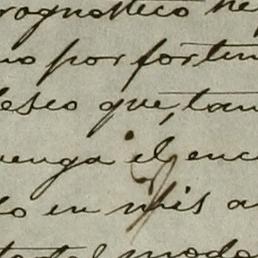 rognostico ne
no por fortun
deseo que, tan
venga el enc
do en mis a
modo